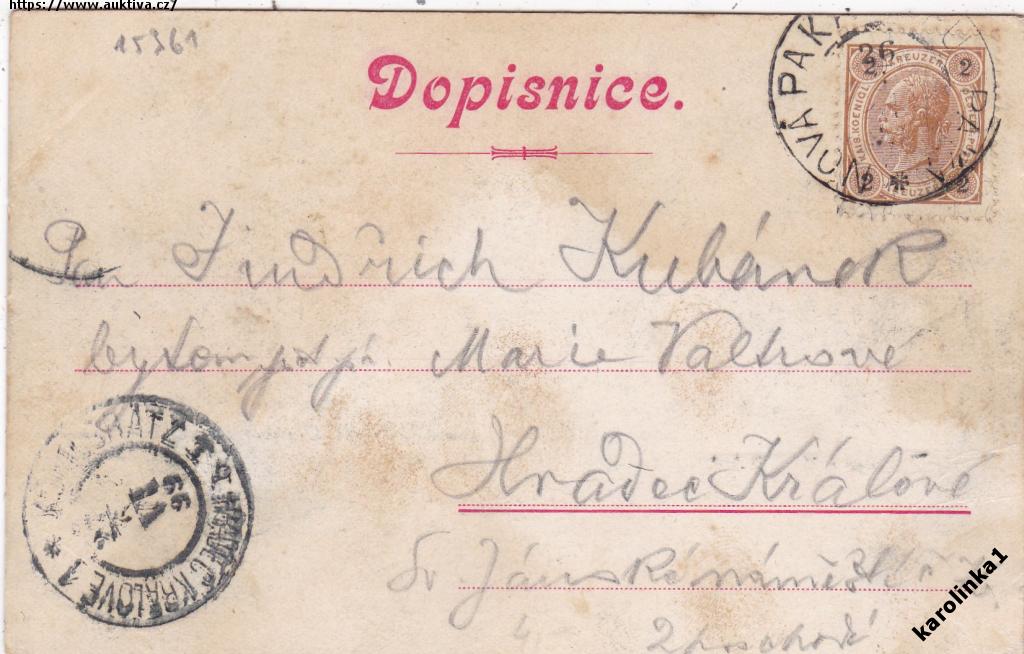 https://www.auktiva.cz/
15361
Dopisnice.
NOVÁ PAKA
26
2 KREUZER 2
2 KREUZER 2
Pan Jindřich Kubánek
bytem Marie Valtrové
Hradec Králové
Sv Jánské náměstí
2 poschodí
KÖNIGGRATZ 1
HRADEC KRÁLOVÉ 1
99
karolinka1